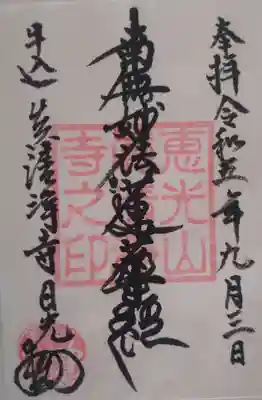 奉拝 令和五年九月三日
南無妙法蓮華経
牛込 清浄寺
惠光山
寺之印